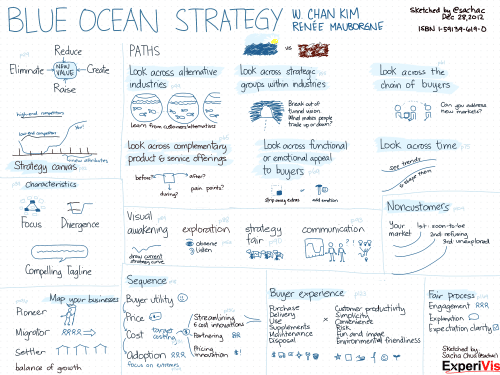 BLUE OCEAN STRATEGY
W. CHAN KIM
RENÉE MAUBORGNE
Sketched by @sachac
Dec 28, 2012
ISBN 1-59139-619-0
Reduce
Eliminate
NEW VALUE
Create
Raise
high-end competitors
low-end competitors
You!
Strategy canvas
Characteristics
Focus
Divergence
Compelling Tagline
PATHS
vs
Look across alternative
industries
Learn from customers/alternatives
Look across strategic
groups within industries
Break out of
tunnel vision
What makes people
trade up or down?
Look across the
chain of buyers
Can you address
new markets?
Look across complementary
product & service offerings
before
after
during?
pain points?
Look across functional
or emotional appeal
to buyers
strip away extras
add emotion
Look across time
See trends
& shape them
Visual
awakening
draw current
strategy curve
exploration
observe
listen
strategy
fair
communication
Noncustomers
Your
market
1st: soon-to-be
2nd: refusing
3rd: unexplored!
Map your businesses
Pioneer
Migrator
Settler
balance of growth
Sequence
Buyer utility
Price
Cost
target
costing
Adoption
Streamlining
& cost innovations
Partnering
Pricing
innovation
Buyer experience
Purchase
Delivery
Use
Supplements
Maintenance
Disposal
x
Customer productivity
Simplicity
Convenience
Risk
Fun and image
Environmental friendliness
Fair process
Engagement
Explanation
Expectation clarity
Sketched by:
Sacha Chua
ExperiVis